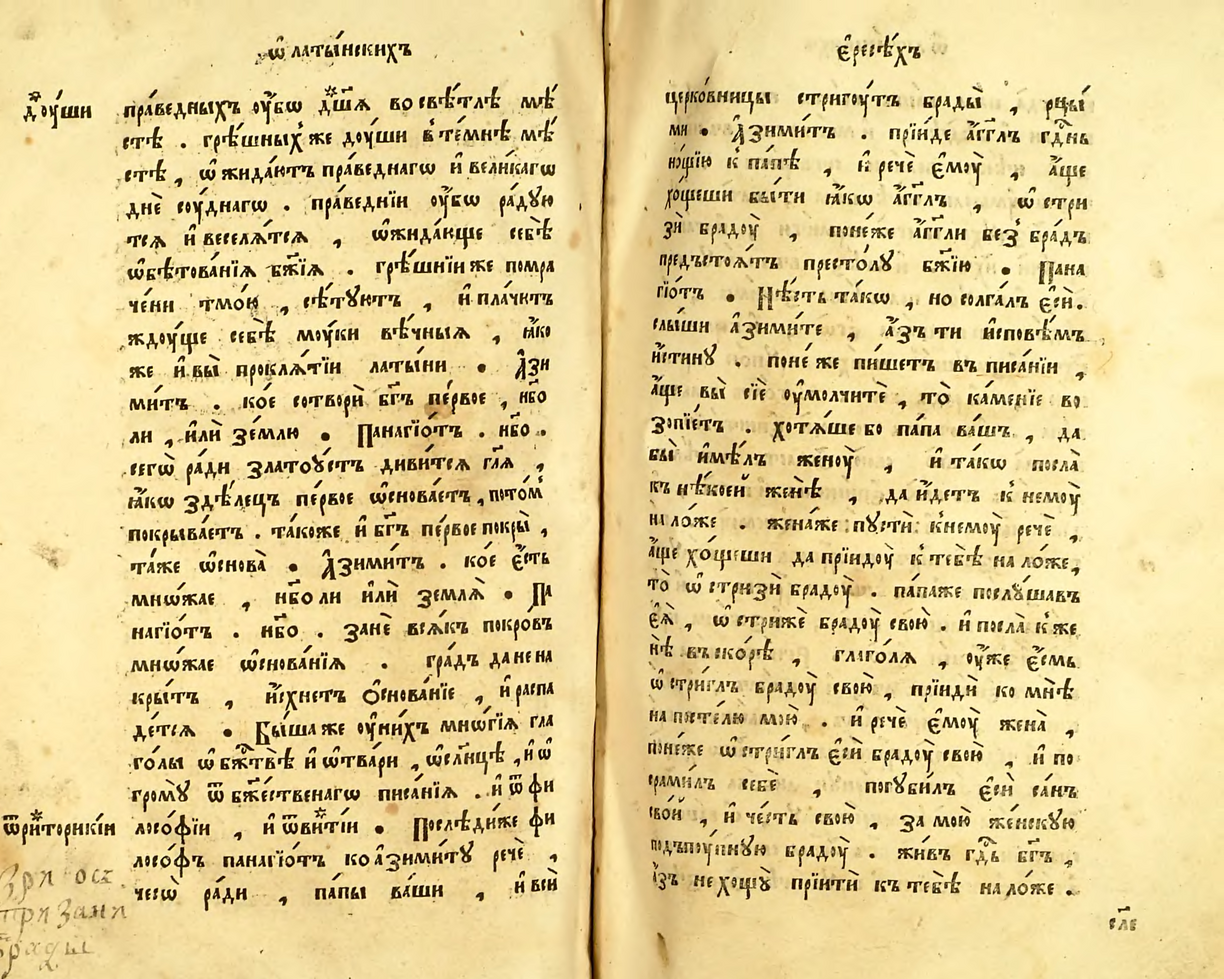 ѽ латы́нскихъ
дꙋ́ши
пра́ведныхъ ᲂу҆́бѡ дш҃ѧ восвѣ́тлѣ мѣ́
стѣ . грѣ́шныхже дꙋ́ши втѐмнѣ мѣ́
стѣ , ѡ҆жида́ютъ пра́веднагѡ и҆ вели́кагѡ
днѐ сꙋ́днагѡ . пра́ведніи ᲂу҆́бѡ ра́дꙋю
тсѧ и҆ веселѧ́тсѧ , ѡ҆жида́юще себѣ̀
ѡ҆бѣтова́нїѧ бж҃їѧ . грѣ́шніиже помра
че́ни тмо́ю , сѣ́тꙋютъ , и҆ пла́чютъ
ждꙋ́ще себѣ̀ мꙋ́ки вѣ́чныѧ , ꙗ҆́ко
же и҆ вы̀ проклѧ́тїи латы́ни . А҆зи
ми́тъ . ко́е сотворѝ бг҃ъ пе́рвое , нб҃о
ли , и҆лѝ зе́млю . Панагїѡ́тъ . нб҃о .
сегѡ̀ ра́ди златоꙋ́стъ диви́тсѧ гл҃ѧ ,
ꙗ҆́кѡ здѣ́лецъ пе́рвое ѡ҆снова́етъ , пото́м
покрыва́етъ . та́коже и҆ бг҃ъ пе́рвое покры̀ ,
та́же ѡ҆снова̀ . А҆зими́тъ . ко́е є҆́сть
мнѡ́жае , нб҃о ли и҆лѝ землѧ̀ . Па
нагїѡ́тъ . нб҃о . занѐ всѧ́къ покро́въ
мнѡ́жае ѡ҆снова́нїѧ . гра́дъ да не на
кры́тъ , и҆́схнетъ ѻ҆снова́нїе , и҆ распа
де́тсѧ . Бы́шаже ᲂу҆ни́хъ мнѡ́гїѧ гла
го́лы ѡ҆ бж҃твѣ̀ и҆ ѡ҆ тва́ри , ѡ҆ сл҃нцѣ , и҆ ѡ҆
гро́мꙋ ѿ бж҃е́ственагѡ писа́нїѧ . и҆ ѿ фи
ѿри́торикїи
лосо́фїи , и҆ ѿви́тїи . Послѣ́диже фи
лосо́фъ панагїѡ́тъ ко а҆зими́тꙋ речѐ ,
чесѡ̀ ра́ди , па́пы ва́ши , и҆ всѝ
Зри ос
при зани
брады
є҆ресѣ́хъ
церко́вницы стригꙋ́тъ брады̀ , рцы́
ми . А҆зими́тъ . прїи́де а҆́гг҃лъ гд҃нь
но́щїю к па́пѣ , и҆ речѐ є҆мꙋ̀ , а҆́ще
хо́щеши бы́ти ꙗ҆́кѡ а҆́гг҃лъ , ѡ҆стри
зѝ брадꙋ̀ , поне́же а҆́гг҃ли без̾ бра́дъ
предъстоѧ́тъ престо́лꙋ бж҃їю . Пана
гїѡ́тъ . Нѣ́сть та́кѡ , но солга́лъ є҆сѝ .
слы́ши а҆зими́те , а҆́зъ ти и҆сповѣ́мъ
и҆́стинꙋ . поне́же пи́шетъ въ писа́нїи ,
а҆́ще вы̀ сїѐ ᲂу҆молчитѐ , то̀ ка́менїе во
зопїе́тъ . хотѧ́ше бо па́па ва́шъ , да
бы̀ и҆мѣ́лъ женꙋ̀ , и҆ та́кѡ посла̀
къ нѣ́коей женѣ̀ , да и҆́детъ к немꙋ̀
на ло́же . жена́же пꙋстѝ к немꙋ̀ речѐ ,
а҆́ще хо́щеши да прїидꙋ̀ к тебѣ̀ на ло́же ,
то̀ ѡ҆стризѝ брадꙋ̀ . па́паже послꙋ́шавъ
є҆ѧ̀ , ѡ҆стри́же брадꙋ̀ свою̀ . и҆ посла̀ к же
нѣ̀ въ ско́рѣ , глаго́лѧ , ᲂу҆́же є҆́смь
ѡ҆стри́глъ брадꙋ̀ свою̀ , прїидѝ ко мнѣ̀
на постє́лю мою̀ . и҆ речѐ є҆мꙋ̀ жена̀ ,
поне́же ѡ҆стри́глъ є҆сѝ брадꙋ̀ свою̀ , и҆ по
срами́лъ себѐ , погꙋби́лъ є҆сѝ са́нъ
сво́й , и҆ че́сть свою̀ , за мою̀ же́нскꙋю
подъпꙋ́пнꙋю брадꙋ̀ . жи́въ гд҃ь бг҃ъ ,
а҆́зъ не хощꙋ̀ прїитѝ къ тебѣ̀ на ло́же .
сл҃е